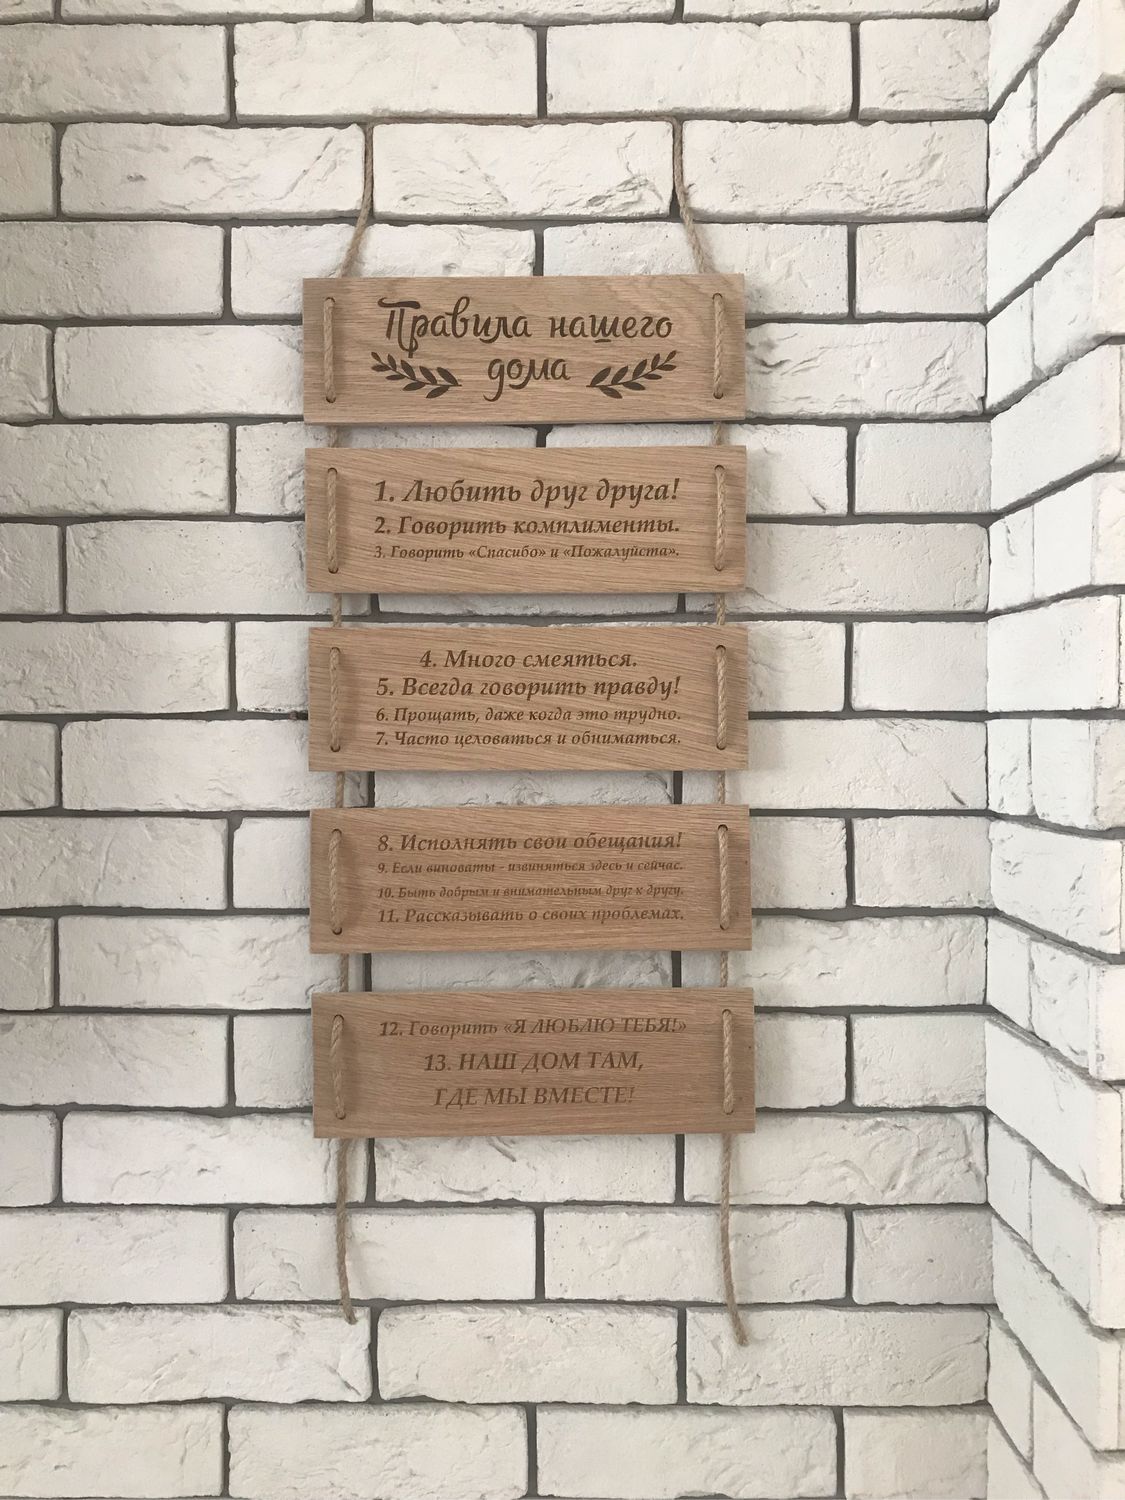 Правила нашего
дома
1. Любить друг друга!
2. Говорить комплименты.
3. Говорить «Спасибо» и «Пожалуйста».
4. Много смеяться.
5. Всегда говорить правду!
6. Прощать, даже когда это трудно.
7. Часто целоваться и обниматься.
8. Исполнять свои обещания!
9. Если виноваты - извиняться здесь и сейчас.
10. Быть добрым и внимательным друг к другу.
11. Рассказывать о своих проблемах.
12. Говорить «Я ЛЮБЛЮ ТЕБЯ!»
13. НАШ ДОМ ТАМ,
ГДЕ МЫ ВМЕСТЕ!